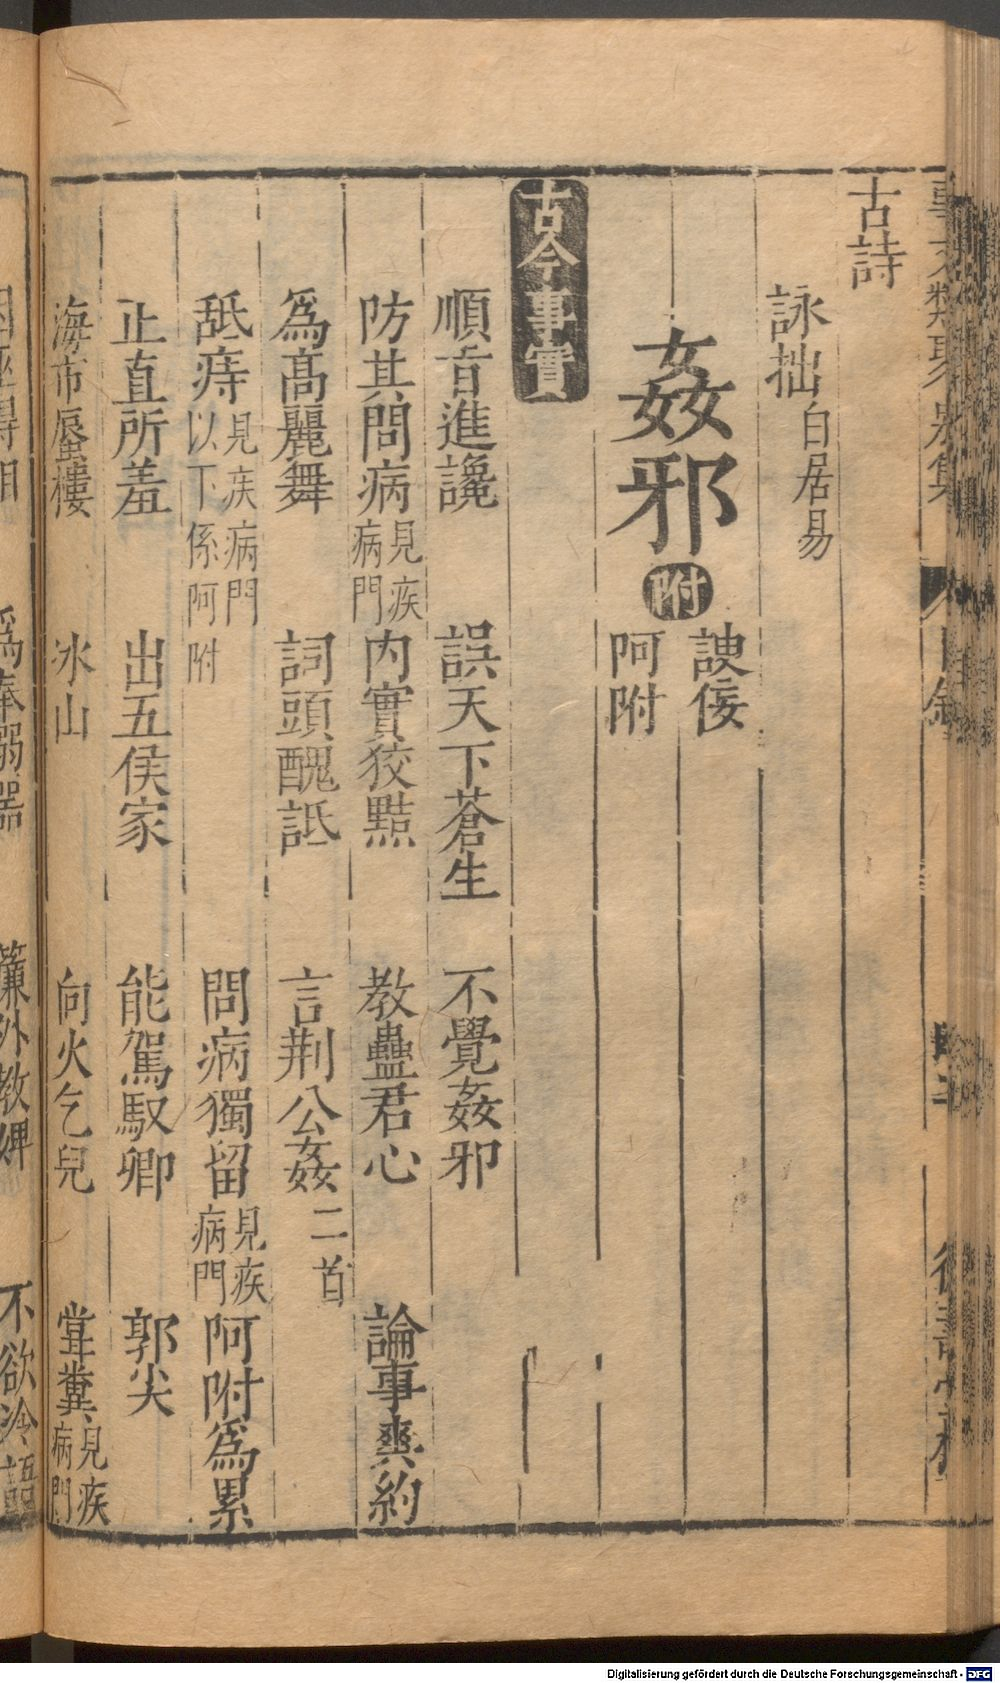 古詩
詠拙白居易
姦邪附諛佞
阿附
古今事實
順旨進讒　誤天下蒼生　不覺姦邪
防其問病見疾病門　内實狡黠　教蠱君心　論事爽約
爲髙麗舞　詞頭醜詆　言荆公姦二首
舐痔見疾病門以下係阿附　問病獨留見疾病門　阿附爲累
止直所羞　出五侯家　能駕馭卿　郭尖
海市蜃樓　冰山　向火乞兒　甞糞見疾病門
爲奉溺器　簾外教婢　不欲冷語
Digitalisierung gefördert durch die Deutsche Forschungsgemeinschaft - DFG